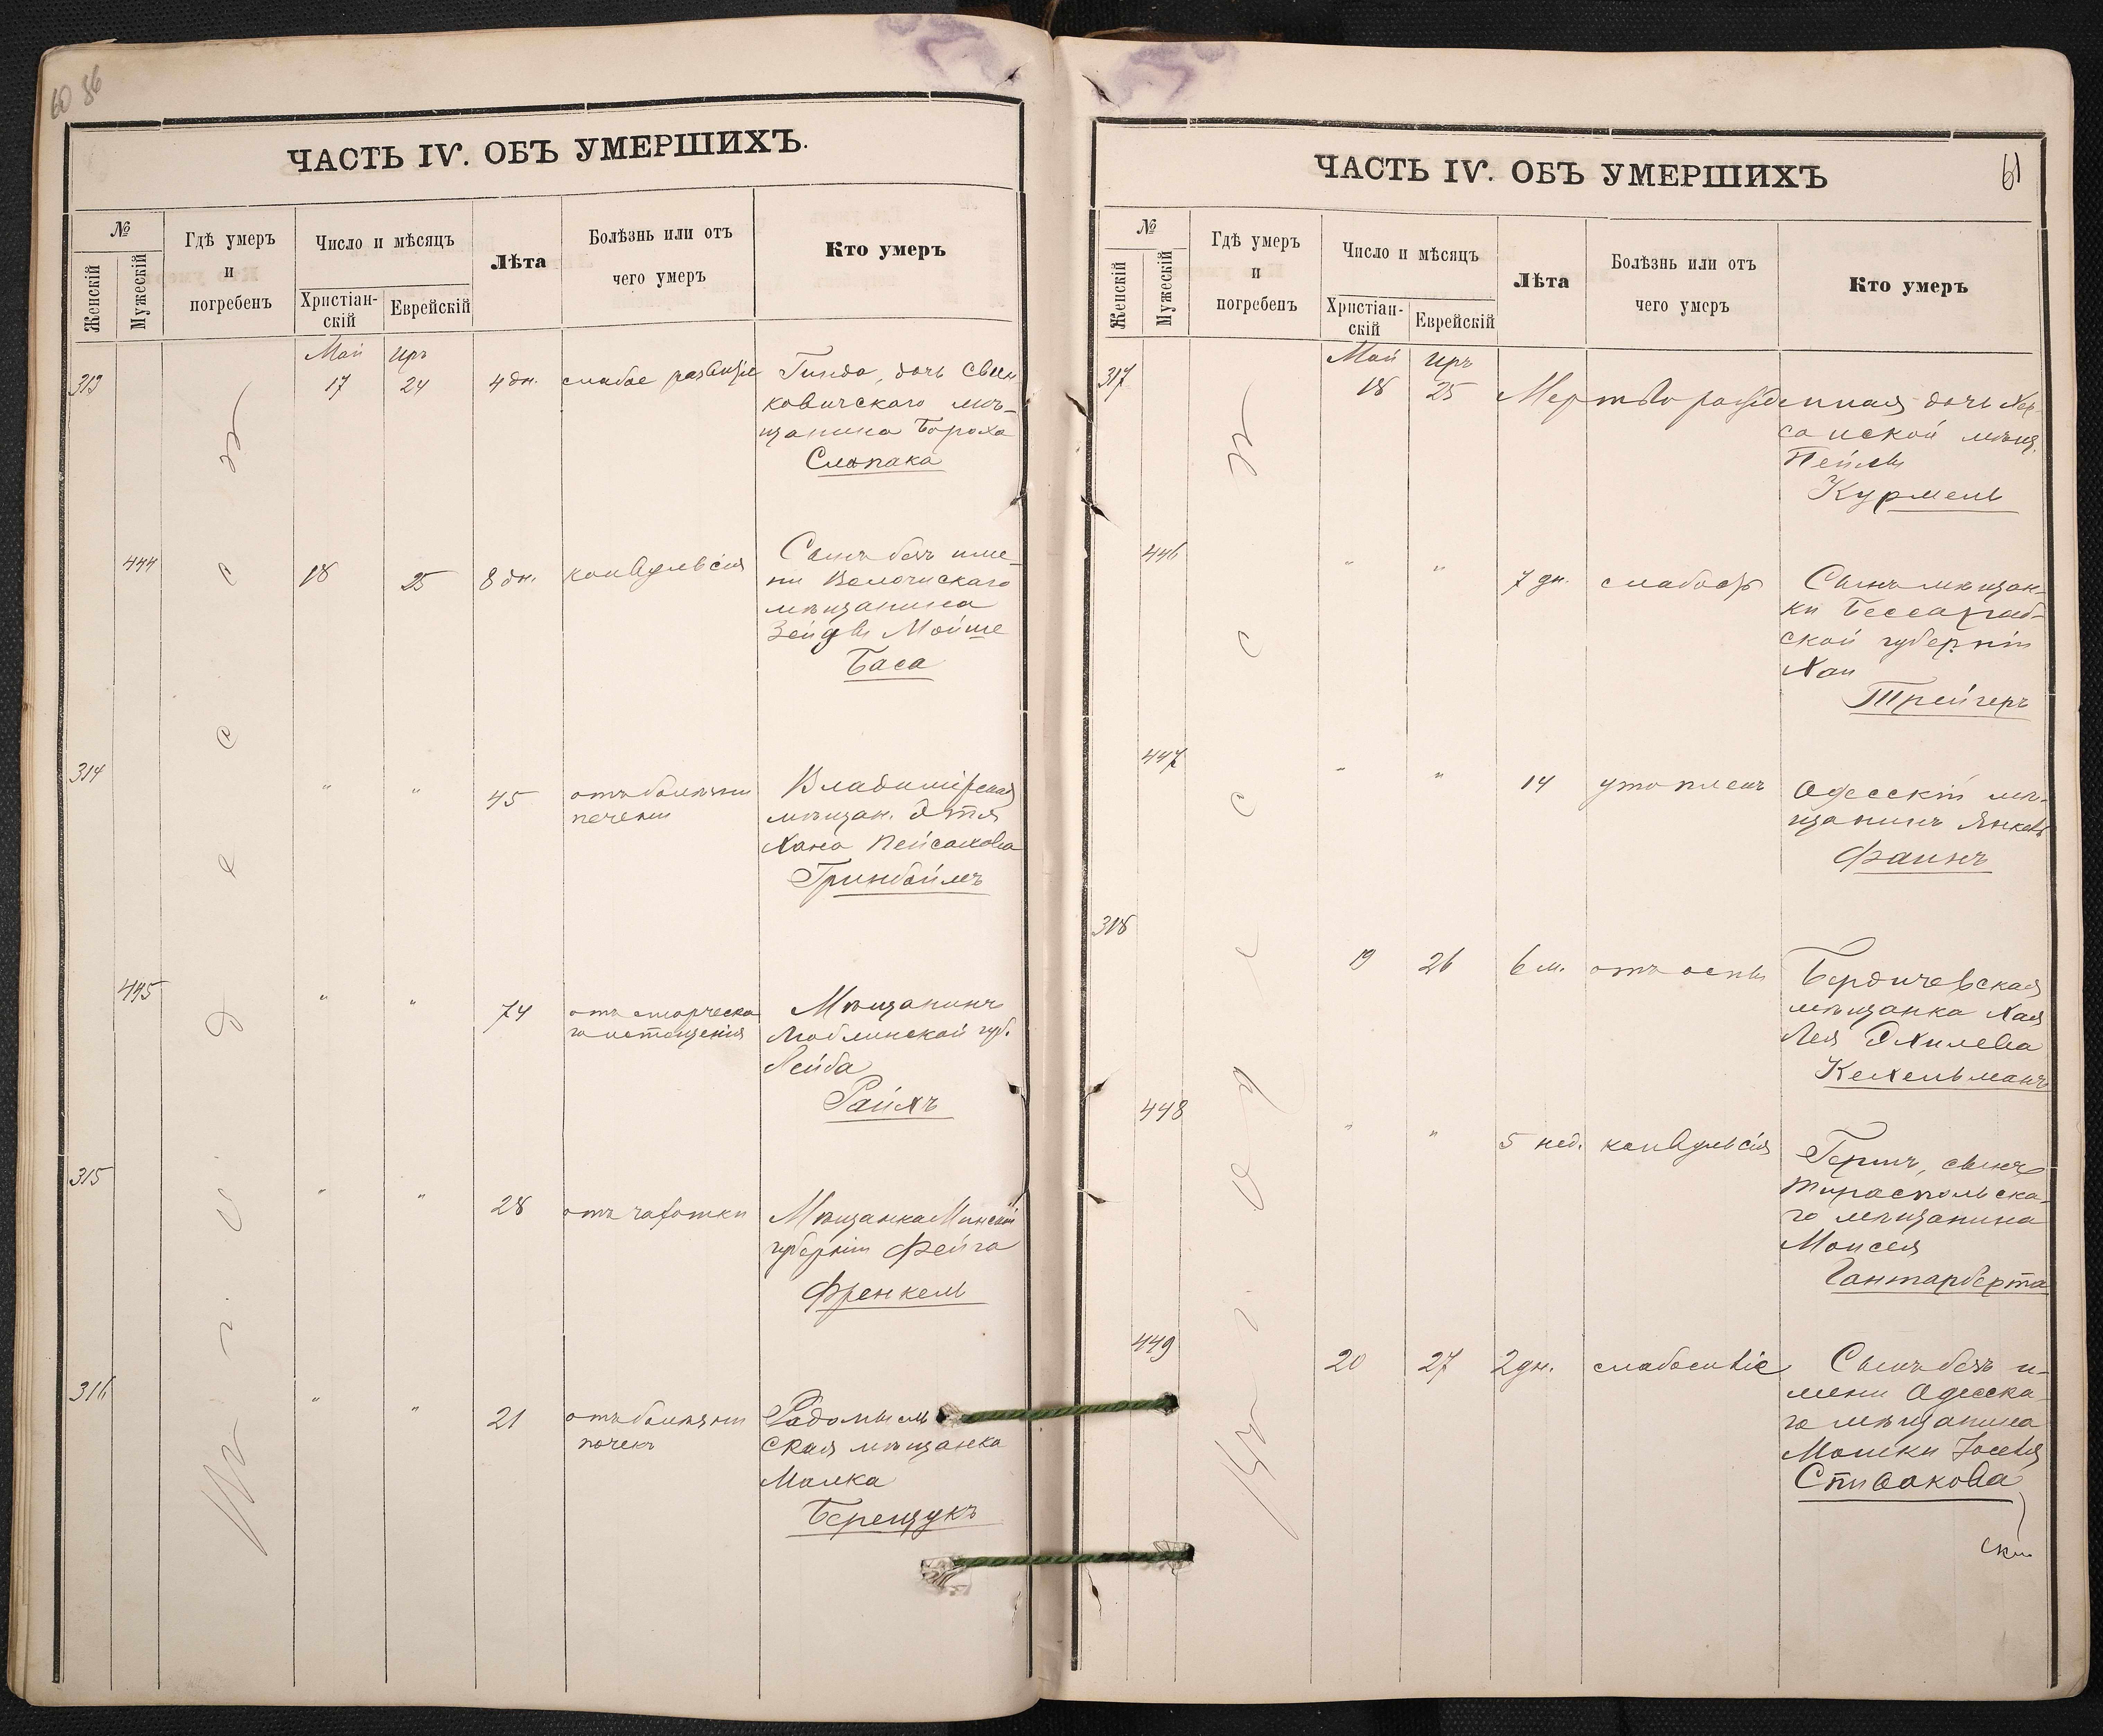 60 86
ЧАСТЬ IV. ОБЪ УМЕРШИХЪ.
№
Женскій
Мужескій
Гдѣ умеръ
и
погребенъ
Число и мѣсяцъ
Христіан-
скій
Еврейскій
Лѣта
Болѣзнь или отъ
чего умеръ
Кто умеръ
Май Иръ
313 17 24 4 дн. слабое развитіе Гинда, дочь Свен
ковичскаго мѣ-
щанина Бороха
Слепака
444 18 25 8 дн. конвульсія Сынъ безъ име-
ни Волочискаго
мѣщанина
Зейдвы Мойше
Баса
314 " " 45 отъ болѣзни
печени
Владимірская
мѣщан. Этля
Хана Пейсахова
Гринбоймъ
445 " " 74 отъ старческа
го истощенія
Мѣщанинъ
Люблинской губ.
Лейба
Райхъ
315 " " 28 отъ чахотки Мѣщанка Минской
губерніи Фейга
Френкель
316 " " 21 отъ болѣзни
почекъ
Радомысль
ская мѣщанка
Малка
Берещукъ
Въ г. Одессѣ
ЧАСТЬ IV. ОБЪ УМЕРШИХЪ
61
№
Женскій
Мужескій
Гдѣ умеръ
и
погребенъ
Число и мѣсяцъ
Христіан-
скій
Еврейскій
Лѣта
Болѣзнь или отъ
чего умеръ
Кто умеръ
Май Иръ
317 18 25 Мертворожденная дочь Хер-
сонской мѣщ.
Пейсы
Курмель
446 " " 7 дн. слабость Сынъ мѣщан-
ки Бессараб-
ской губерніи
Хаи
Трейгеръ
447 " " 14 утопленъ Одесскій мѣ-
щанинъ Янкель
Фаинъ
318 19 26 6 м. отъ оспы Бердичевская
мѣщанка Хая
Лея Эхилева
Кехельманъ
448 " " 5 нед. конвульсія Гершъ, сынъ
Тираспольска-
го мѣщанина
Моисея
Гантарберта
449 20 27 2 дн. слабосиліе Сынъ безъ и-
мени Одесска-
го мѣщанина
Мошки Іосевя
Спивакова
Въ г. Одессѣ